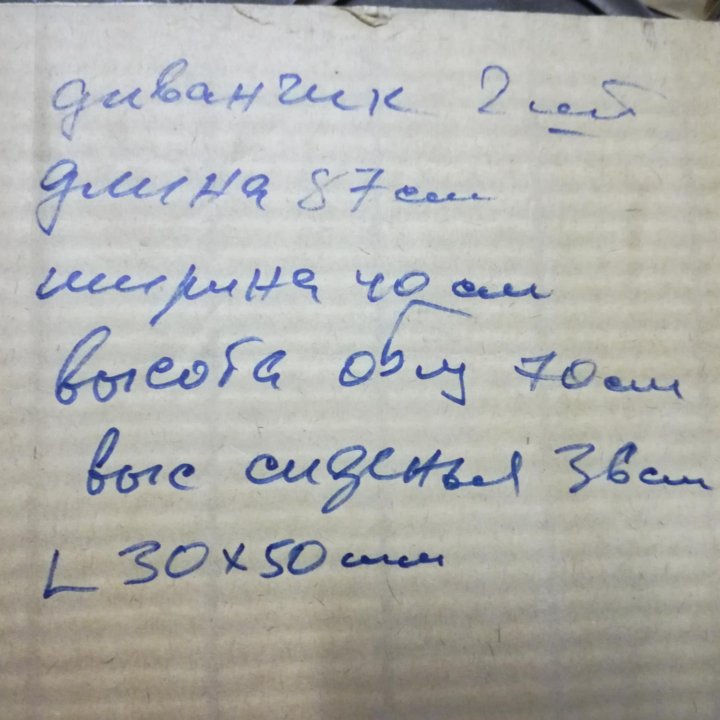 диванчик 2
длина 87 см
ширина 40 см
высота общ 70 см
выс сиденья 36 см
L 30x50 мм